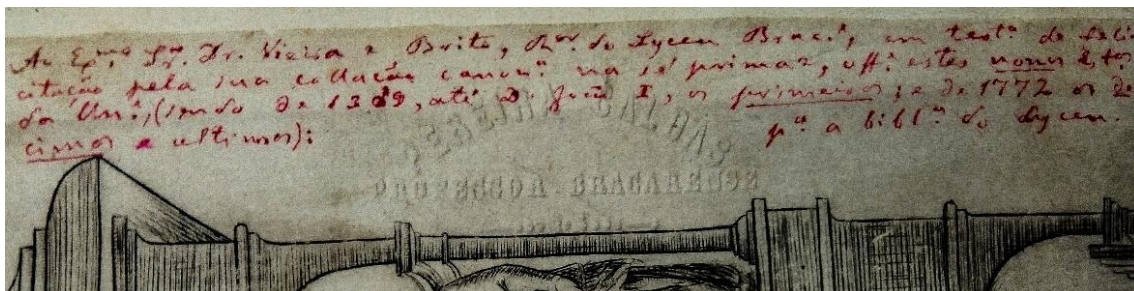 Ao Ex.mo Sr. Dr. Vieira e Brito, R.or do Lyceu Brac.e, em test.o de feli-
citação pela sua collação canon.a na sé primaz, off.e estes nonos E.tos
da Un.e, (sendo de 1309, até D. João I, os primeiros; e de 1772 os de-
cimos e ultimos): p.a a bibl.a do Lyceu.